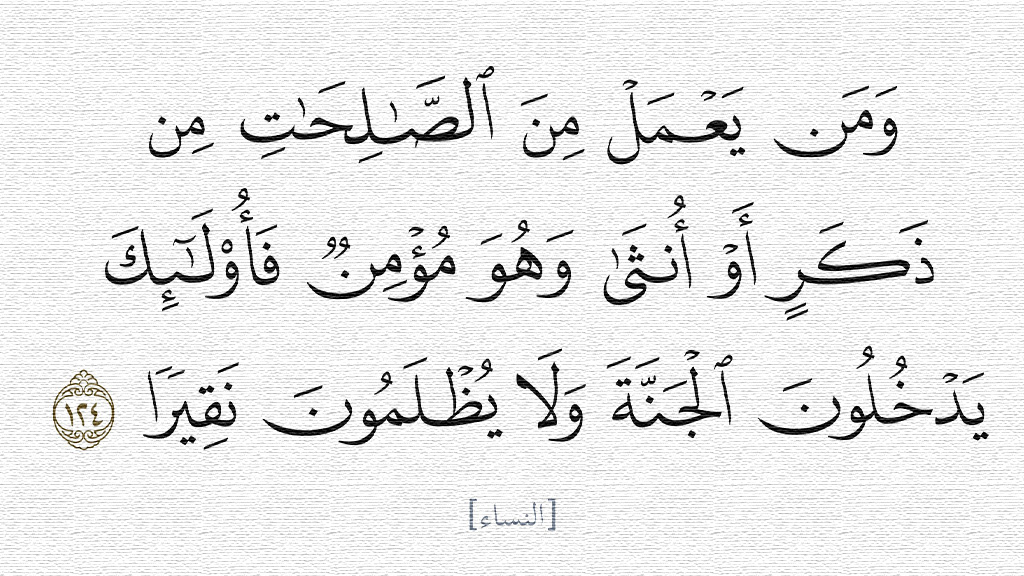 وَمَن يَعْمَلْ مِنَ ٱلصَّـٰلِحَـٰتِ مِن
ذَكَرٍ أَوْ أُنثَىٰ وَهُوَ مُؤْمِنٌ فَأُو۟لَـٰٓئِكَ
يَدْخُلُونَ ٱلْجَنَّةَ وَلَا يُظْلَمُونَ نَقِيرًا ١٢٤
[النساء]